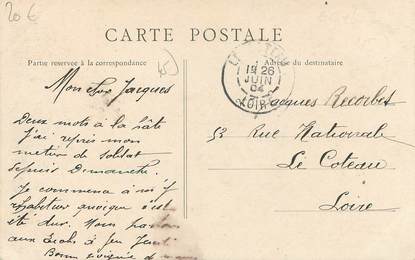 20 €
CARTE POSTALE
Partie réservée à la correspondance
Adresse du destinataire
Mon cher Jacques
Deux mots à la hâte
j'ai repris mon
metier de soldat
depuis Dimanche.
Je commence à m'y
habituer quoique c'est
été dur. Nous
aux à feu Jeudi
Bonne
LE COTEAU
19 26
JUIN
04
LOIRE
Jacques Recorbet
53 Rue Nationale
Le Coteau
Loire